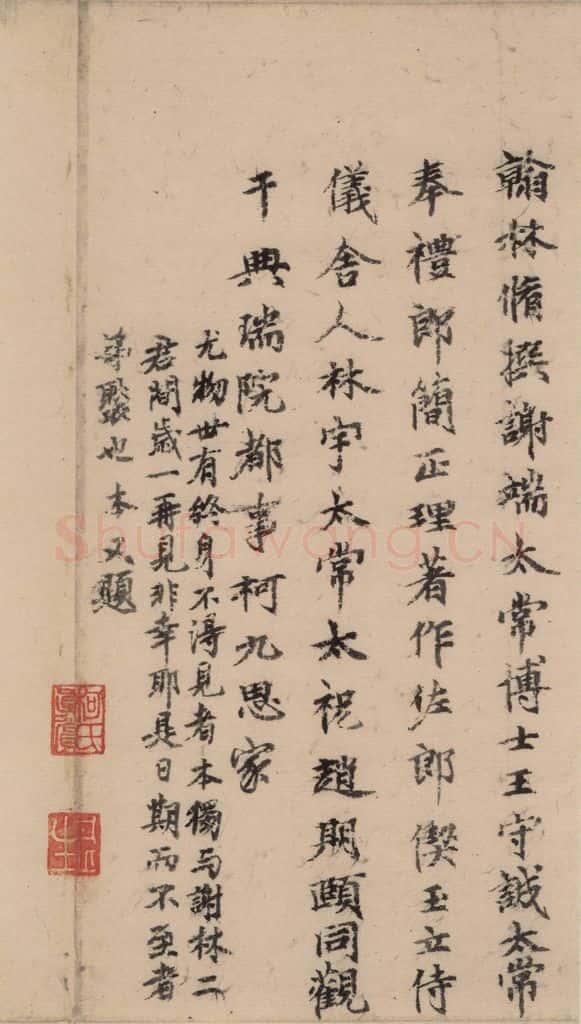 翰林脩撰謝端太常博士王守誠太常
奉禮郎簡正理著作佐郎偰玉立侍
儀舍人林宇太常太祝趙期頤同觀
于典瑞院都事柯九思家
尤物世有終身不得見者本獨与謝林二
君間歲一再見非幸耶是日期而不至者
也本又題
柯氏
Shufawang.CN